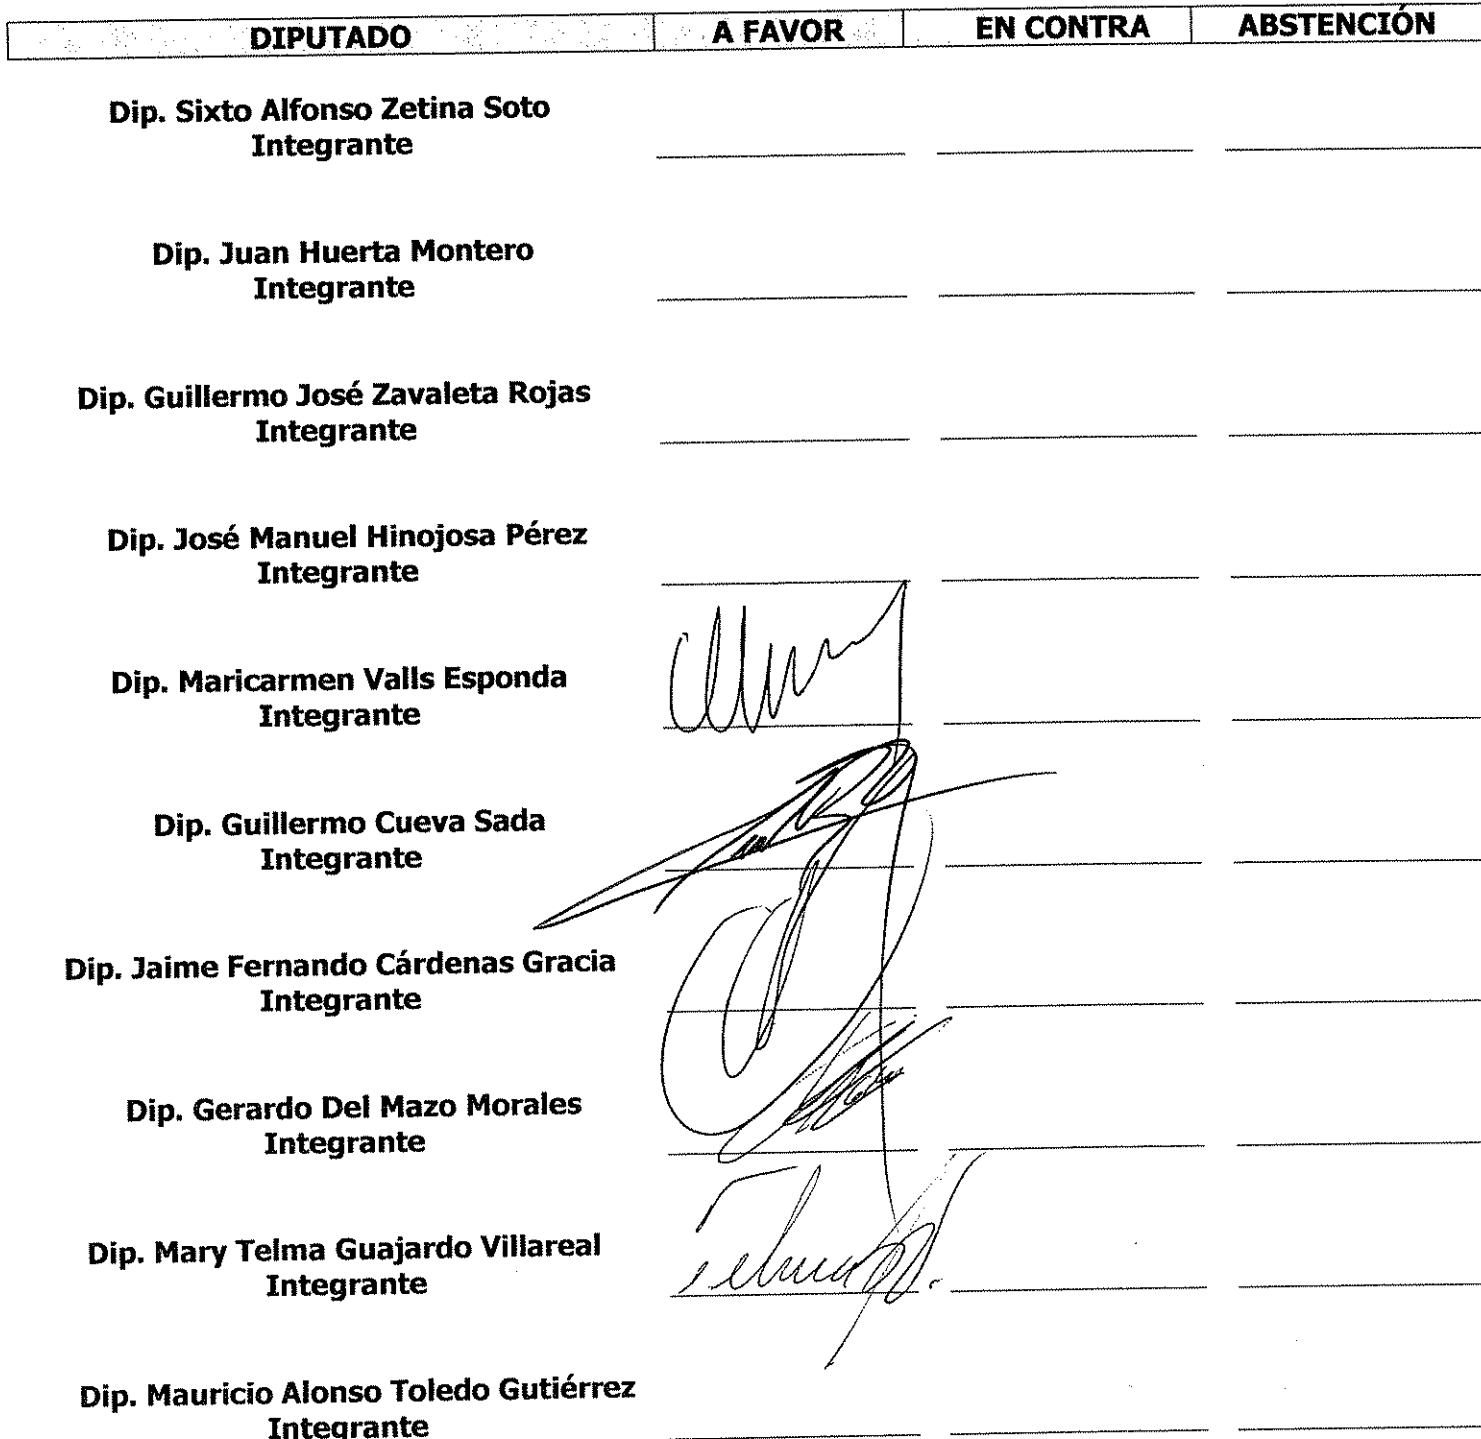 DIPUTADO A FAVOR EN CONTRA ABSTENCIÓN
Dip. Sixto Alfonso Zetina Soto
Integrante
Dip. Juan Huerta Montero
Integrante
Dip. Guillermo José Zavaleta Rojas
Integrante
Dip. José Manuel Hinojosa Pérez
Integrante
Dip. Maricarmen Valls Esponda
Integrante
Dip. Guillermo Cueva Sada
Integrante
Dip. Jaime Fernando Cárdenas Gracia
Integrante
Dip. Gerardo Del Mazo Morales
Integrante
Dip. Mary Telma Guajardo Villareal
Integrante
Dip. Mauricio Alonso Toledo Gutiérrez
Integrante